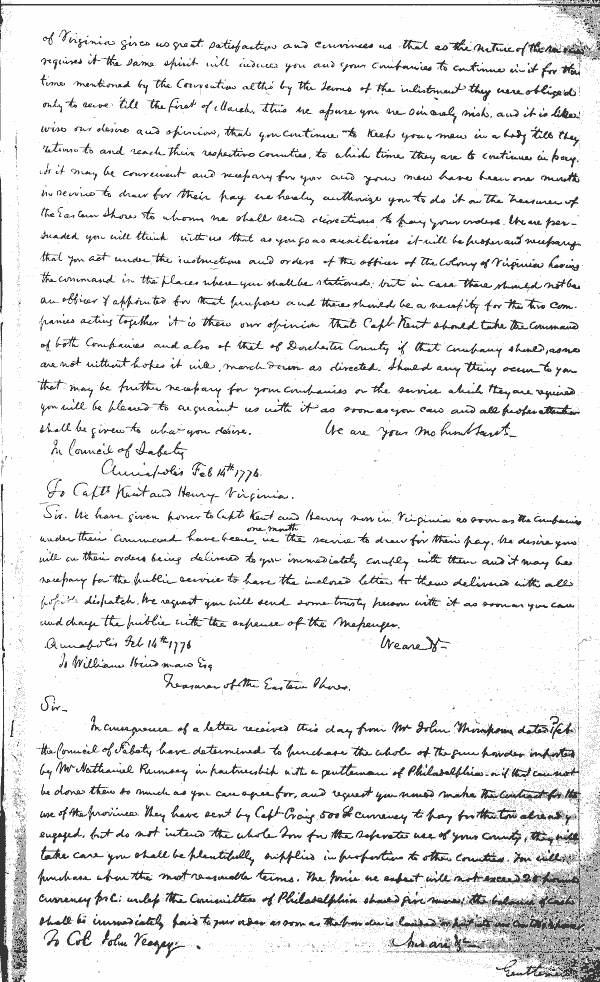 of Virginia gives us great satisfaction and convinces us that as the nature of the
requires it the same spirit will induce you and your Companies to continue in it for the
time mentioned by the Convention altho by the terms of the inlistment they were obliged
only to serve till the first of March, this we assure you we sincerely wish, and it is like-
wise our desire and opinion, that you continue to keep your men in a body till they
return to and reach their respective counties, to which time they are to continue in pay.
As it may be convenient and necessary for you and your men have been one month
in service to draw for their pay we hereby authorize you to do it on the Treasurer of
the Eastern Shore to whom we shall send directions to pay your orders. We are per-
suaded you will think with us that as you go as auxiliaries it will be proper and necessary
that you act under the instructions and orders of the officer of the Colony of Virginia having
the command in the places where you shall be stationed; but in case there should not be
an officer appointed for that purpose and there should be a necessity for the two Com-
panies acting together it is then our opinion that Capt Kent should take the Command
of both Companies and also of that of Dorchester County if that company should, as we
are not without hopes it will, march down as directed. Should any thing occur to you
that may be further necessary for your companies or the service which they are required
you will be pleased to acquaint us with it as soon as you can and all proper attention
shall be given to what you desire. We are your mo hum Servts
In Council of Safety
Annapolis Feb 14th 1776.
To Capts Kent and Henry Virginia.
Sir. We have given power to Capts Kent and Henry now in Virginia as soon as the Companies
under their Command have been one month in the service to draw for their pay. We desire you
will on their orders being delivered to you immediately comply with them and it may be
necessary for the public service to have the inclosed letter to them delivered with all
possible dispatch. We request you will send some trusty person with it as soon as you can
and charge the public with the expense of the Messenger.
Annapolis Feb 14th 1776 We are &c
To William Hindman Esq
Treasurer of the Eastern Shore.
Sir
In consequence of a letter received this day from Mr John Thompson dated
the Council of Safety have determined to purchase the whole of the gun powder imported
by Mr Nathaniel Rumsey in partnership with a gentleman of Philadelphia or if that can not
be done then so much as you can agree for, and request you would make the contract for the
use of the province. They have sent by Capt Craig 500 £ currency to pay for the ton already
engaged, but do not intend the whole Ton for the seperate use of your County, they will
take care you shall be plentifully supplied in proportion to other Counties. You will
purchase upon the most reasonable terms. The price we expect will not exceed 20 pounds
currency pr C: unless the Committee of Philadelphia should give more; the balance of Cash
shall be immediately paid to your order as soon as the powder is landed
To Col John Veazey. And are &c
Gentlemen